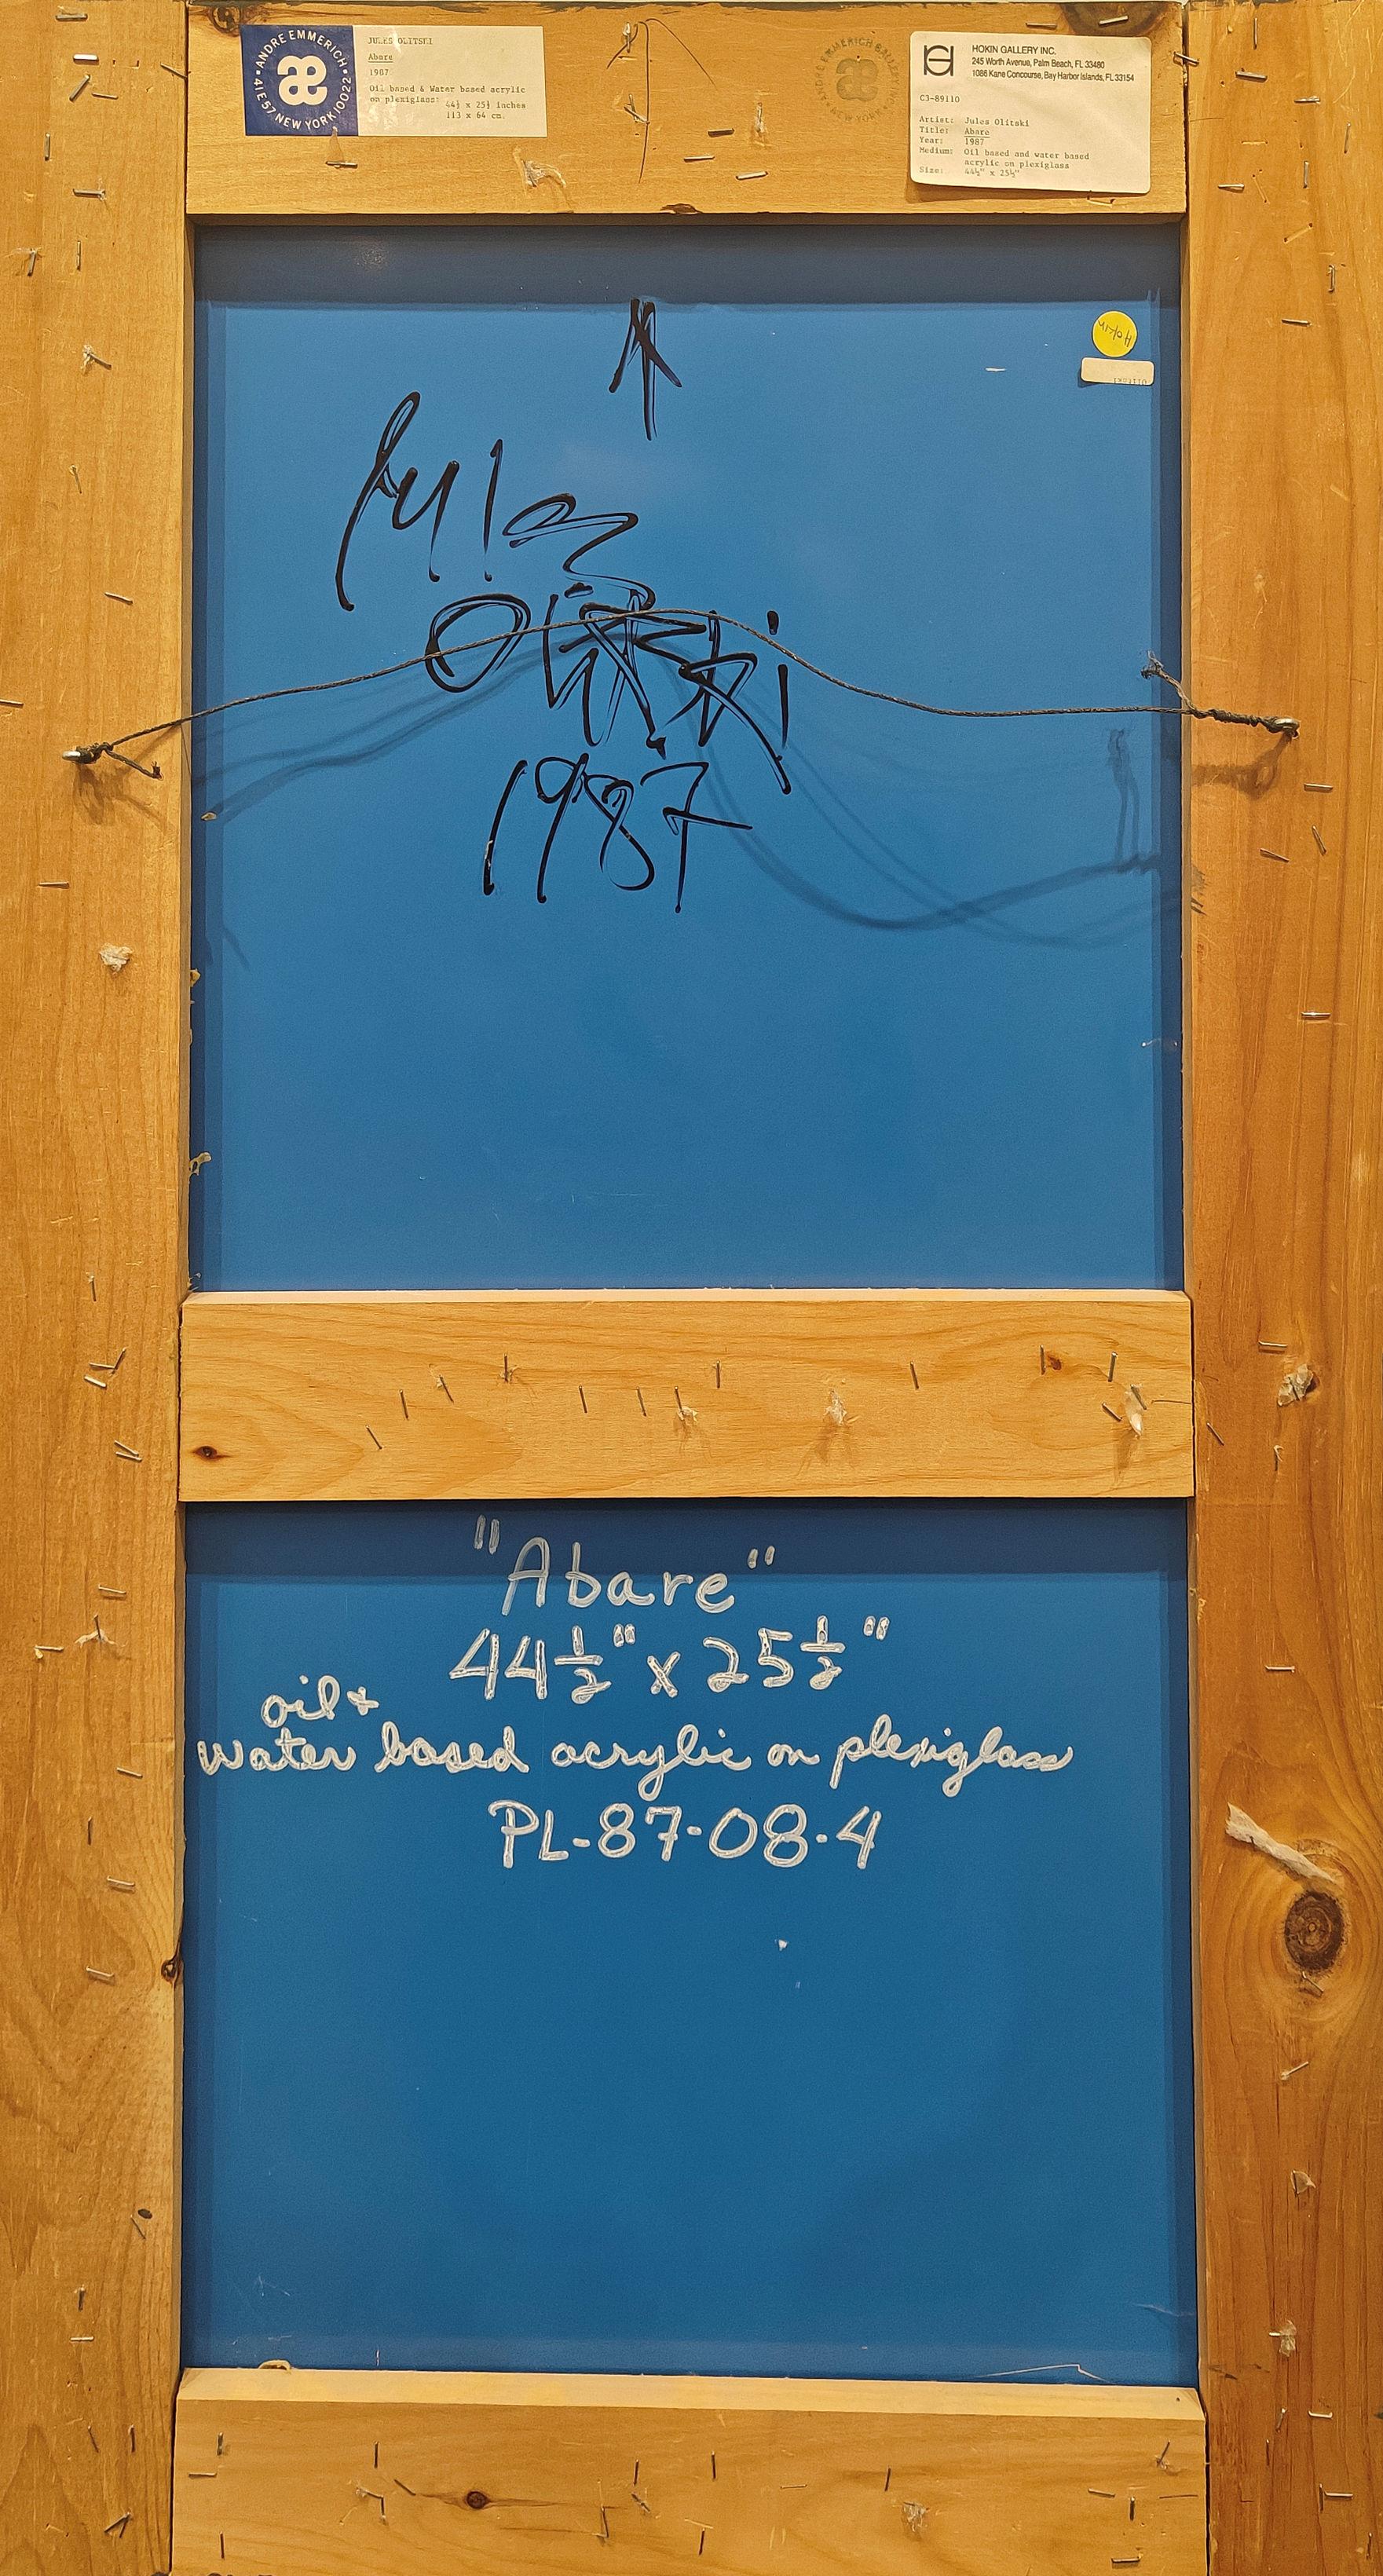 ANDRE EMMERICH
41 E 57 NEW YORK 10022
æ
JULES OLITSKI
Abare
1987
Oil based & Water based acrylic
on plexiglass: 44½ x 25½ inches
113 x 64 cm.
ANDRE EMMERICH GALLERY
æ
HOKIN GALLERY INC.
245 Worth Avenue, Palm Beach, FL 33480
1086 Kane Concourse, Bay Harbor Islands, FL 33154
C3-89110
Artist: Jules Olitski
Title: Abare
Year: 1987
Medium: Oil based and water based
acrylic on plexiglass
Size: 44½" x 25½"
Hokin
OLITSKI
Jules
Olitski
1987
"Abare"
44½" x 25½"
oil +
water based acrylic on plexiglass
PL-87-08-4